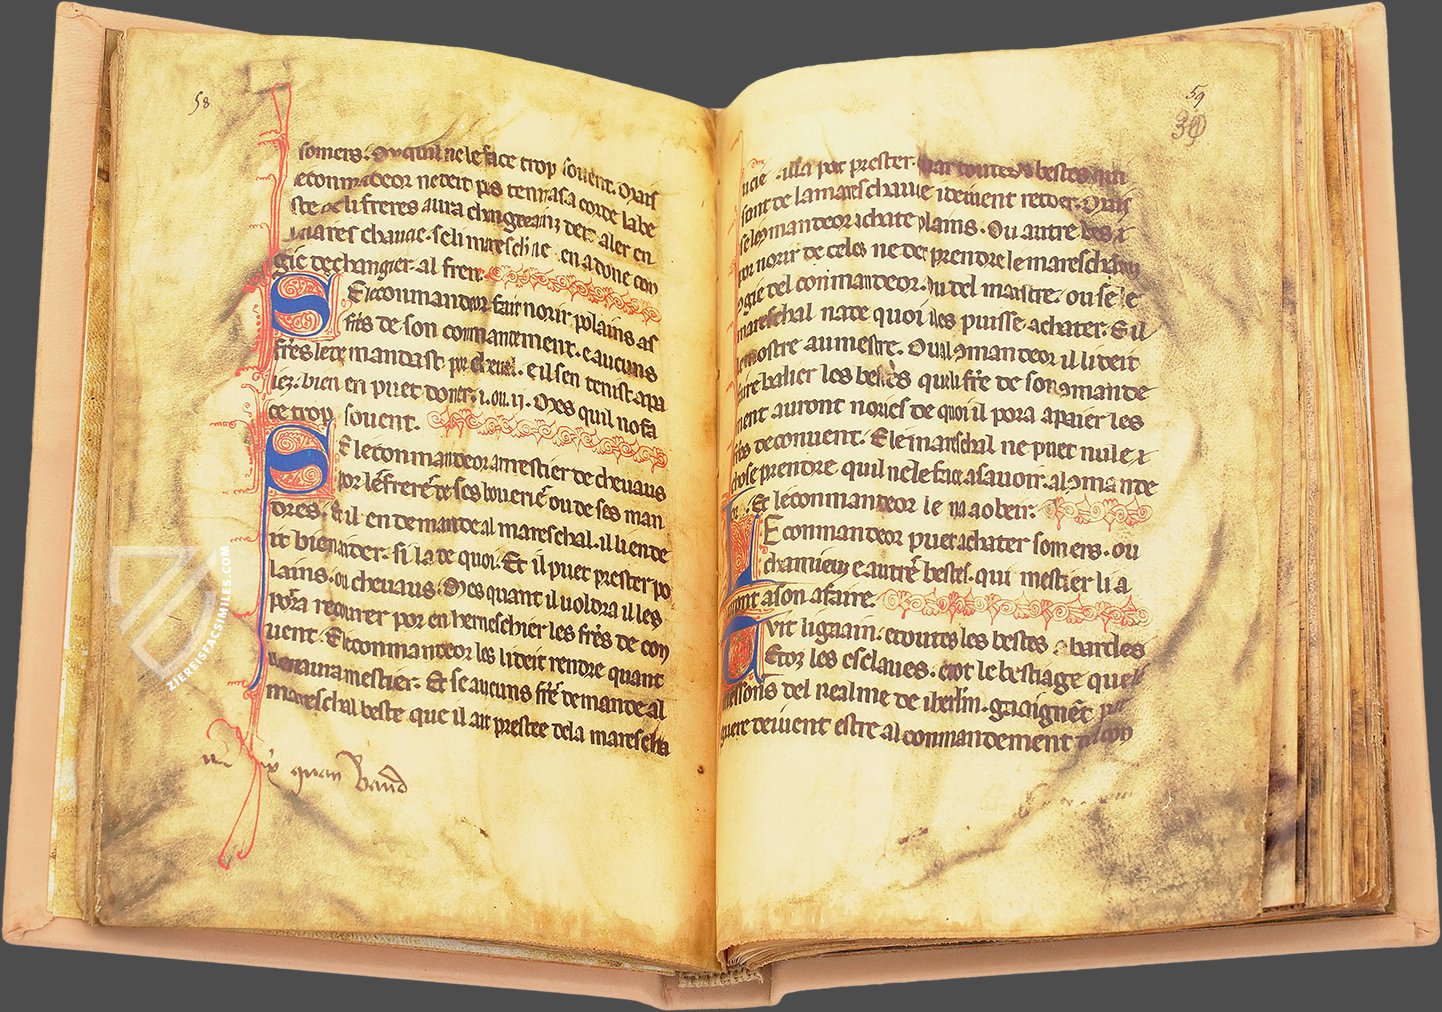 58
somers. ou quil ne le face trop souent. Mais
le conmandeor ne deit pas tenir a sa corde la be
ste se li freres aura changie ainz deit aler en
la mares chaucie. se li mareschal en a done con
gie de changier. al frere
Se le conmandeor fait norir polains as
freres de son conmandement. e aucuns
freres le demandast por cheual. e il sen tenist apa
iez. bien en puet doner. i. ou. ij. Mes quil no fa
ce trop souent.
Se le conmandeor a mestier de cheuaus
por les freres de ses boueries ou de ses man
dres. e il en demande al mareschal. il li en de
it bien aider. si la de quoi. Et il puet prester po
lains. ou cheuaus. Mes quant il uoldra il les
pora recourer por en herneschier les freres de con
uent. E le conmandeor les li deit rendre quant
il en aura mestier. Et se aucuns frere demande al
mareschal beste que il ait prestee de la marescha
quan Band
59
39
ucie illa por prester. par toutes bestes qui
sont de la mareschaucie i deiuent retor. Mais
se le conmandeor achate polains. Ou autre bestes
por norir de celes ne deit prendre le mareschal
gie del conmandeor. ou del maistre. ou se le
mareschal na de quoi il les puisse achater. E il
le mostre au mestre. Ou al comandeor il li deit
faire balier les bestes que li frere de son comande
ment auront nories de quoi il pora apaier les
freres de conuent. E le mareschal ne puet nule
chose prendre quil ne le face asauoir. al comande
or. Et le conmandeor le na a obeir.
Le commandeor puet achater somers. ou
chamieus e autres bestes. qui mestier li a
uront a son afaire.
Tuit li gaain. e toutes les bestes a bardes
e toz les esclaues. e tot le bestiage que les
messons del realme de iherusalem. gaaignent par
guere deiuent estre al conmandement del con
ZIEREISFACSIMILES.COM